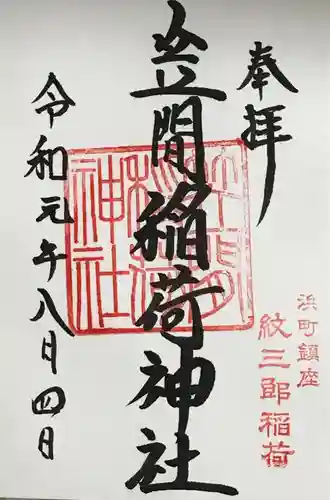 奉拝
浜町鎮座
紋三郎稲荷
笠間稲荷神社
笠間稲荷神社
令和元年八月四日